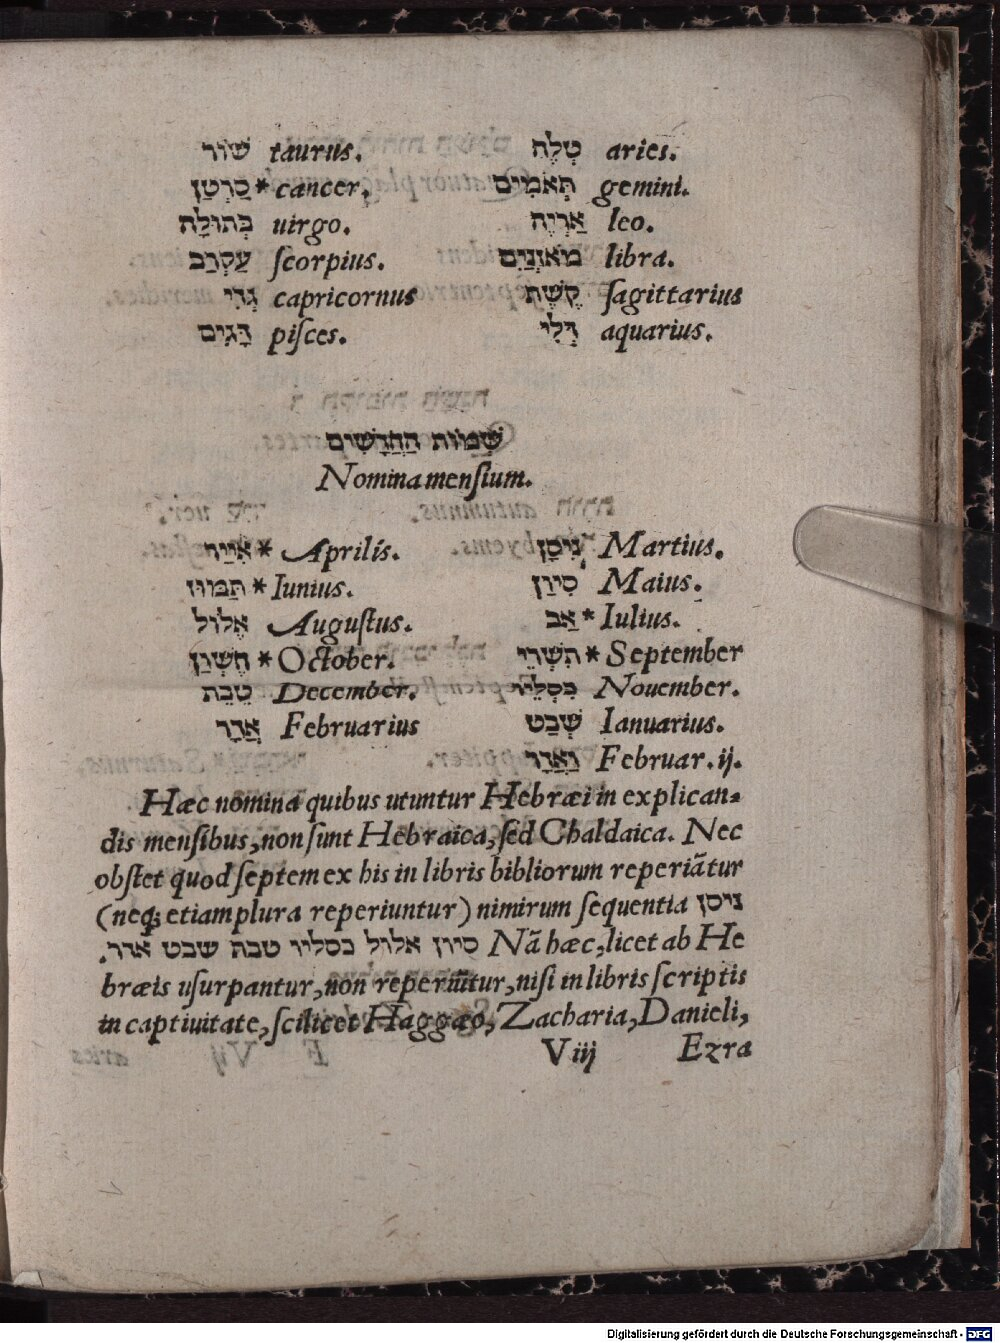 שׁוֹר taurus. טָלֶה aries.
סַרְטָן * cancer, תְּאֹמִים gemini.
בְּתוּלָה uirgo. אַרְיֵה leo.
עַקְרָב ſcorpius. מֹאזְנַיִם libra.
גְּדִי capricornus קֶשֶׁת ſagittarius
דָּגִים piſces. דְּלִי aquarius.
שְׁמוֹת הַחֳדָשִׁים
Nomina menſium.
אִיָּיר * Aprilis. נִיסָן Martius.
תַּמּוּז * Iunius. סִיוָן Maius.
אֱלוּל Auguſtus. אַב * Iulius.
חֶשְׁוָן * October. תִּשְׁרֵי * September
טֵבֵת December. כִּסְלֵיו Nouember.
אֲדָר Februarius שְׁבַט Ianuarius.
וַאֲדָר Februar. ij.
Hæc nomina quibus utuntur Hebræi in explican-
dis menſibus, non ſunt Hebraica, ſed Chaldaica. Nec
obſtet quod ſeptem ex his in libris bibliorum reperiãtur
(neqꝫ etiam plura reperiuntur) nimirum ſequentia ניסן
סיון אלול כסליו טבת שבט אדר. Nã hæc, licet ab He
bræis uſurpantur, non reperiũtur, niſi in libris ſcriptis
in captiuitate, ſcilicet Haggæo, Zacharia, Danieli,
V iij Ezra
Digitalisierung gefördert durch die Deutsche Forschungsgemeinschaft - DFG